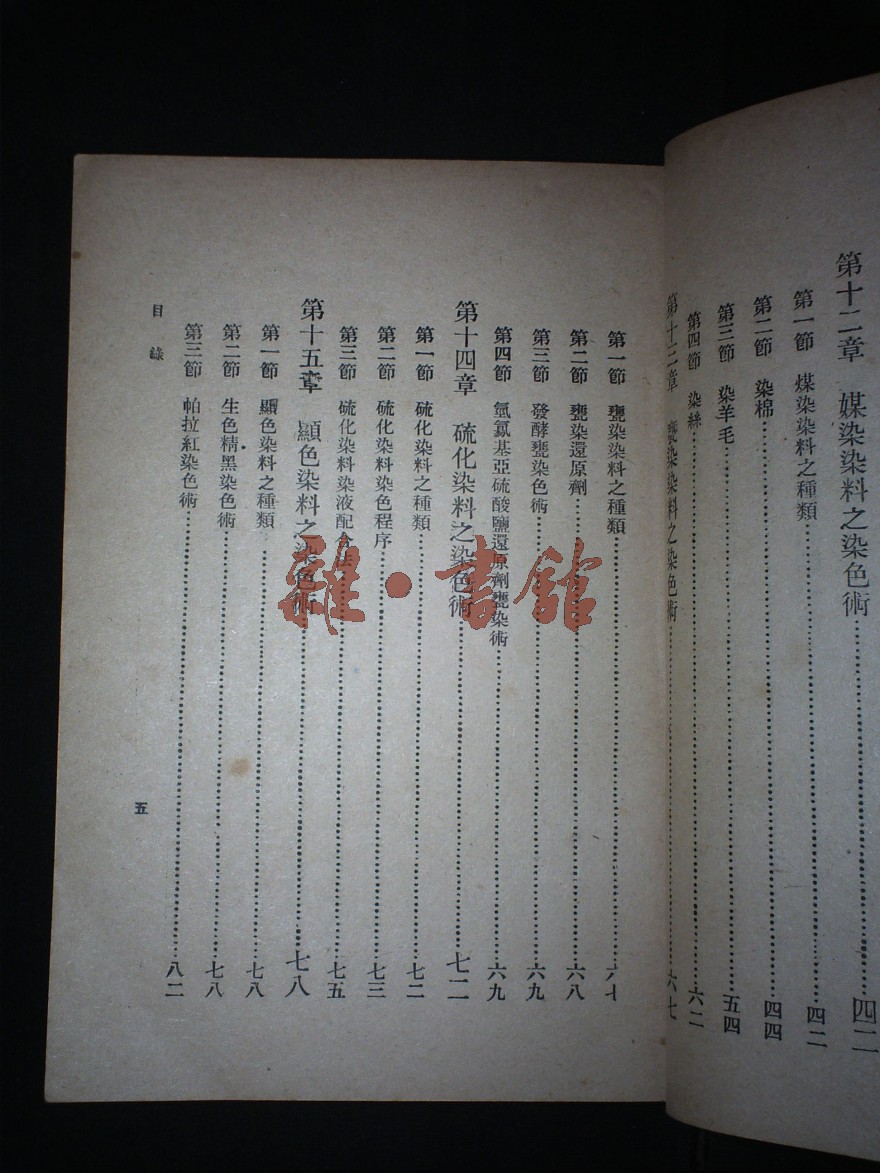 第十二章　媒染染料之染色術……四二
第一節　媒染染料之種類……四二
第二節　染棉……四四
第三節　染羊毛……五四
第四節　染絲……六二
第十三章　甕染染料之染色術……六七
第一節　甕染染料之種類……六七
第二節　甕染還原劑……六八
第三節　發酵甕染色術……六九
第四節　氫氮基亞硫酸鹽還原劑甕染術……六九
第十四章　硫化染料之染色術……七二
第一節　硫化染料之種類……七二
第二節　硫化染料染色程序……七三
第三節　硫化染料染液配合法……七五
第十五章　顯色染料之染色術……七八
第一節　顯色染料之種類……七八
第二節　生色精黑染色術……七八
第三節　帕拉紅染色術……八二
目錄
五
雜·書館